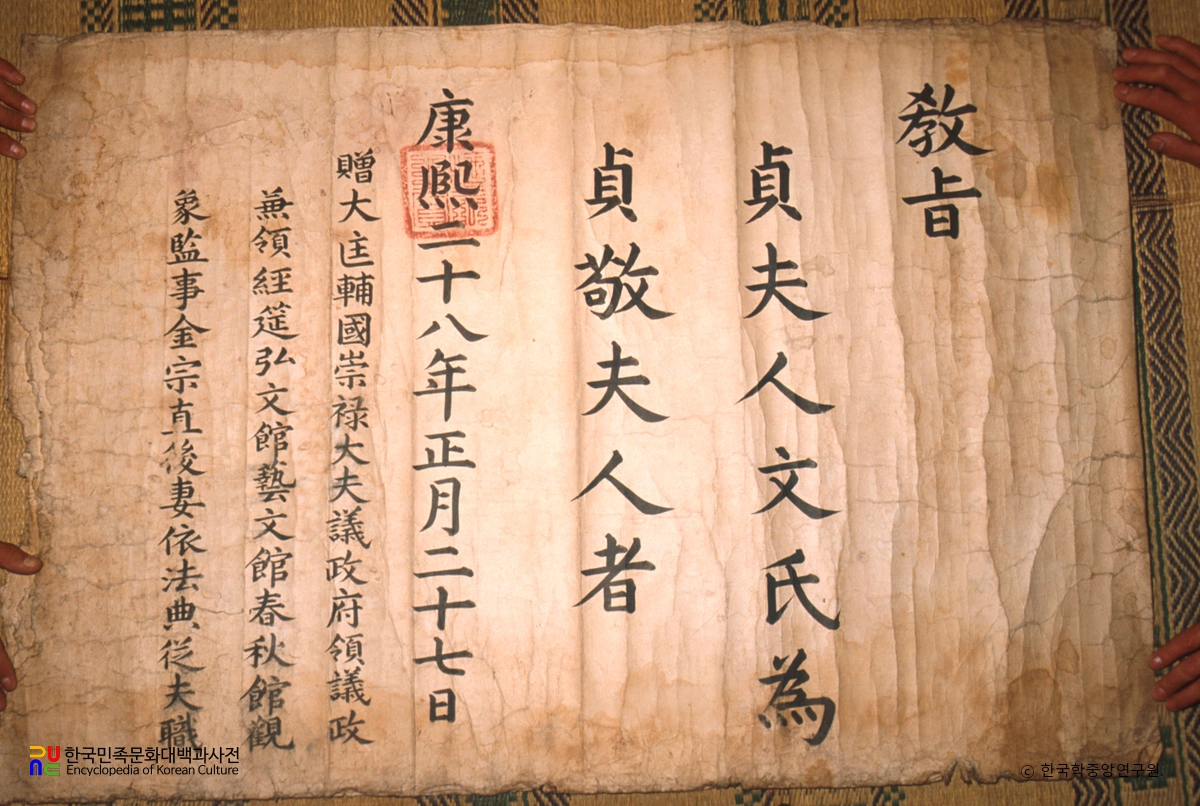 敎旨
貞夫人文氏為
貞敬夫人者
康熙二十八年正月二十七日
贈大匡輔國崇禄大夫議政府領議政
兼領經筵弘文館藝文館春秋館觀
象監事金宗直後妻依法典從夫職
한국민족문화대백과사전
Encyclopedia of Korean Culture
© 한국학중앙연구원